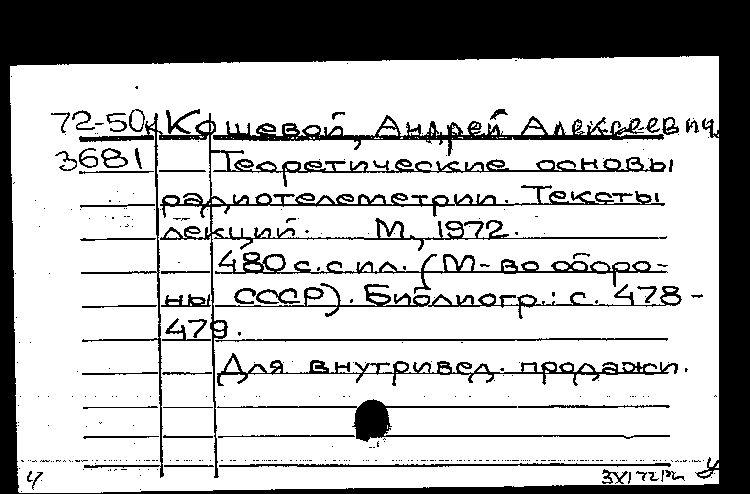 72-50к Кошевой, Андрей Алексеевич.
3681 Теоретические основы
радиотелеметрии. Тексты
лекций. М., 1972.
480 с. с ил. (М-во оборо-
ны СССР). Библиогр.: с. 478-
479.
Для внутривед. продажи.
ч